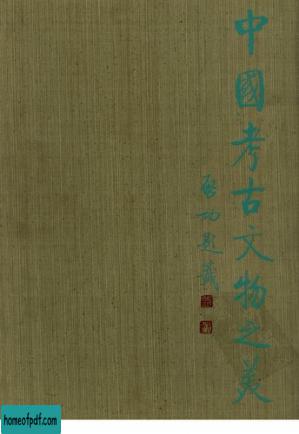 中國考古文物之美
啓功題簽
homeofpdf.com